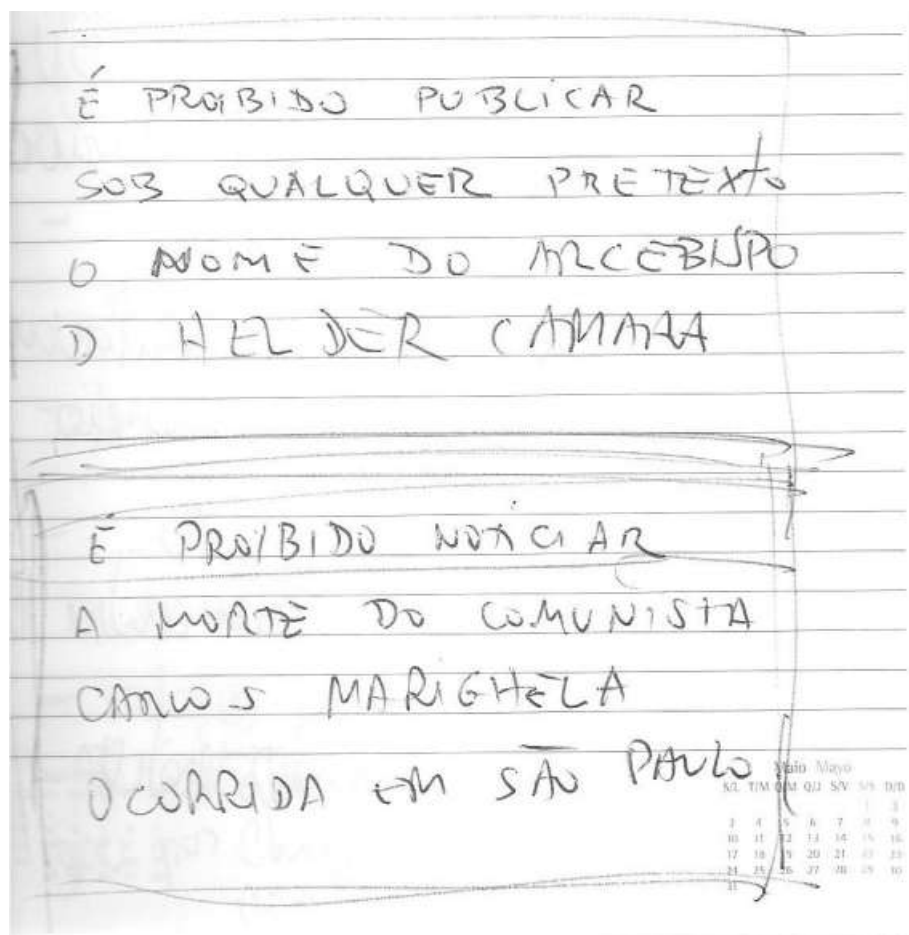 É PROIBIDO PUBLICAR
SOB QUALQUER PRETEXTO
O NOME DO ARCEBISPO
D HELDER CAMARA
É PROIBIDO NOTICIAR
A MORTE DO COMUNISTA
CARLOS MARIGHELA
OCORRIDA EM SÃO PAULO
Maio Mayo
S/L T/M Q/M Q/J S/V S/S D/D
1 2
3 4 5 6 7 8 9
10 11 12 13 14 15 16
17 18 19 20 21 22 23
24 25 26 27 28 29 30
31